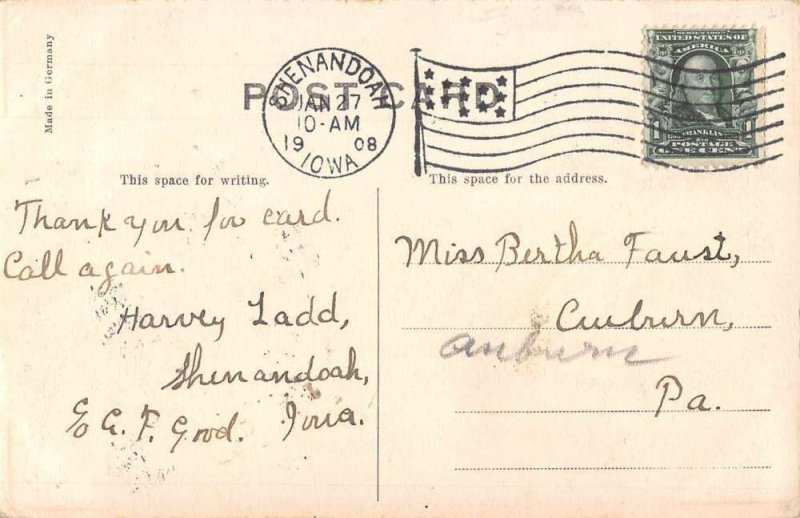 Made in Germany
POST CARD
SHENANDOAH
JAN 27
10-AM
19 08
IOWA
SERIES 1902
UNITED STATES OF
AMERICA
FRANKLIN
POSTAGE
1 ONE CENT 1
This space for writing.
This space for the address.
Thank you for card.
Call again.
Harvey Ladd,
Shenandoah,
Iowa.
c/o G. F. Good.
Miss Bertha Faust,
Auburn,
Auburn
Pa.